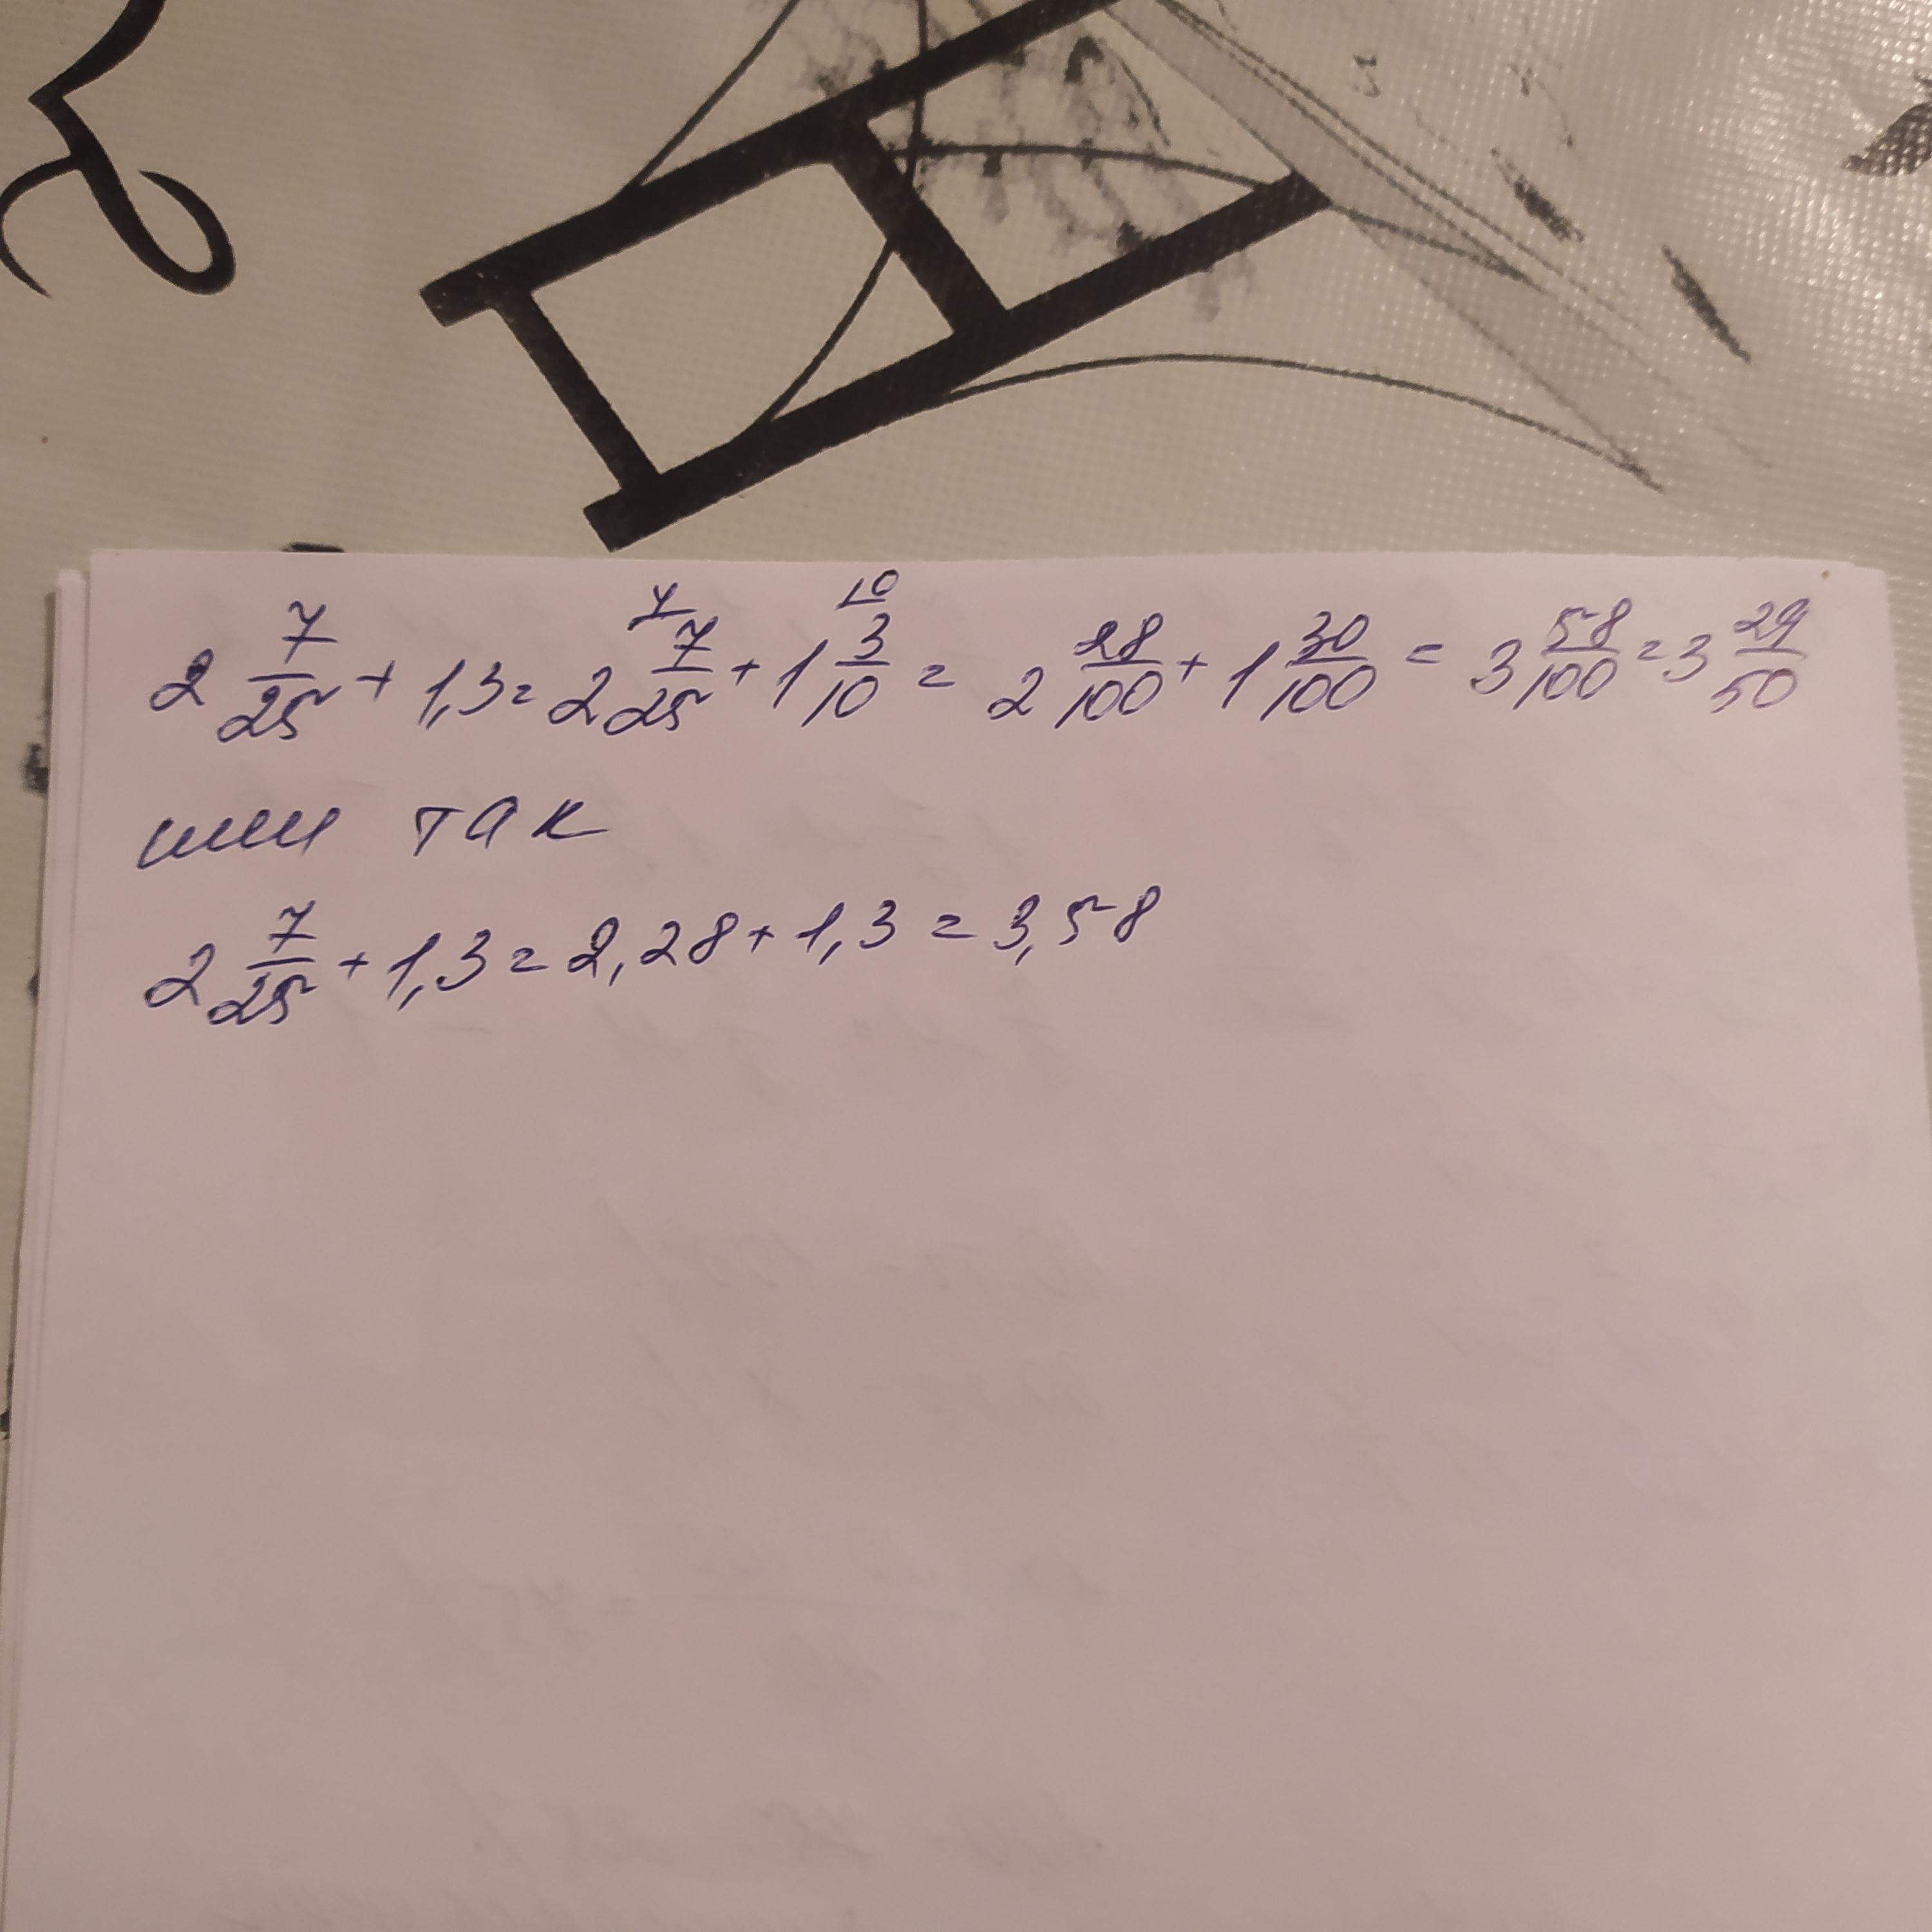 2 7/25 + 1,3 = 2 7/25 (4 + 1 3/10 (10 = 2 28/100 + 1 30/100 = 3 58/100 = 3 29/50
или так
2 7/25 + 1,3 = 2,28 + 1,3 = 3,58